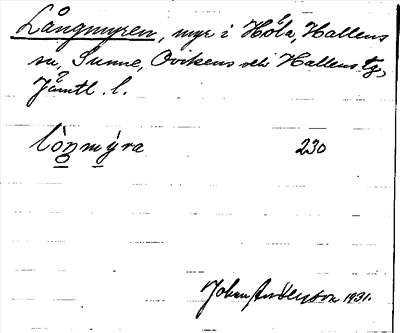 Långmyren, myr i Höla, Hallens
sn, Sunne, Ovikens och Hallens tg,
Jämtl. l.
lòŋmýra 230
Johan 1931.